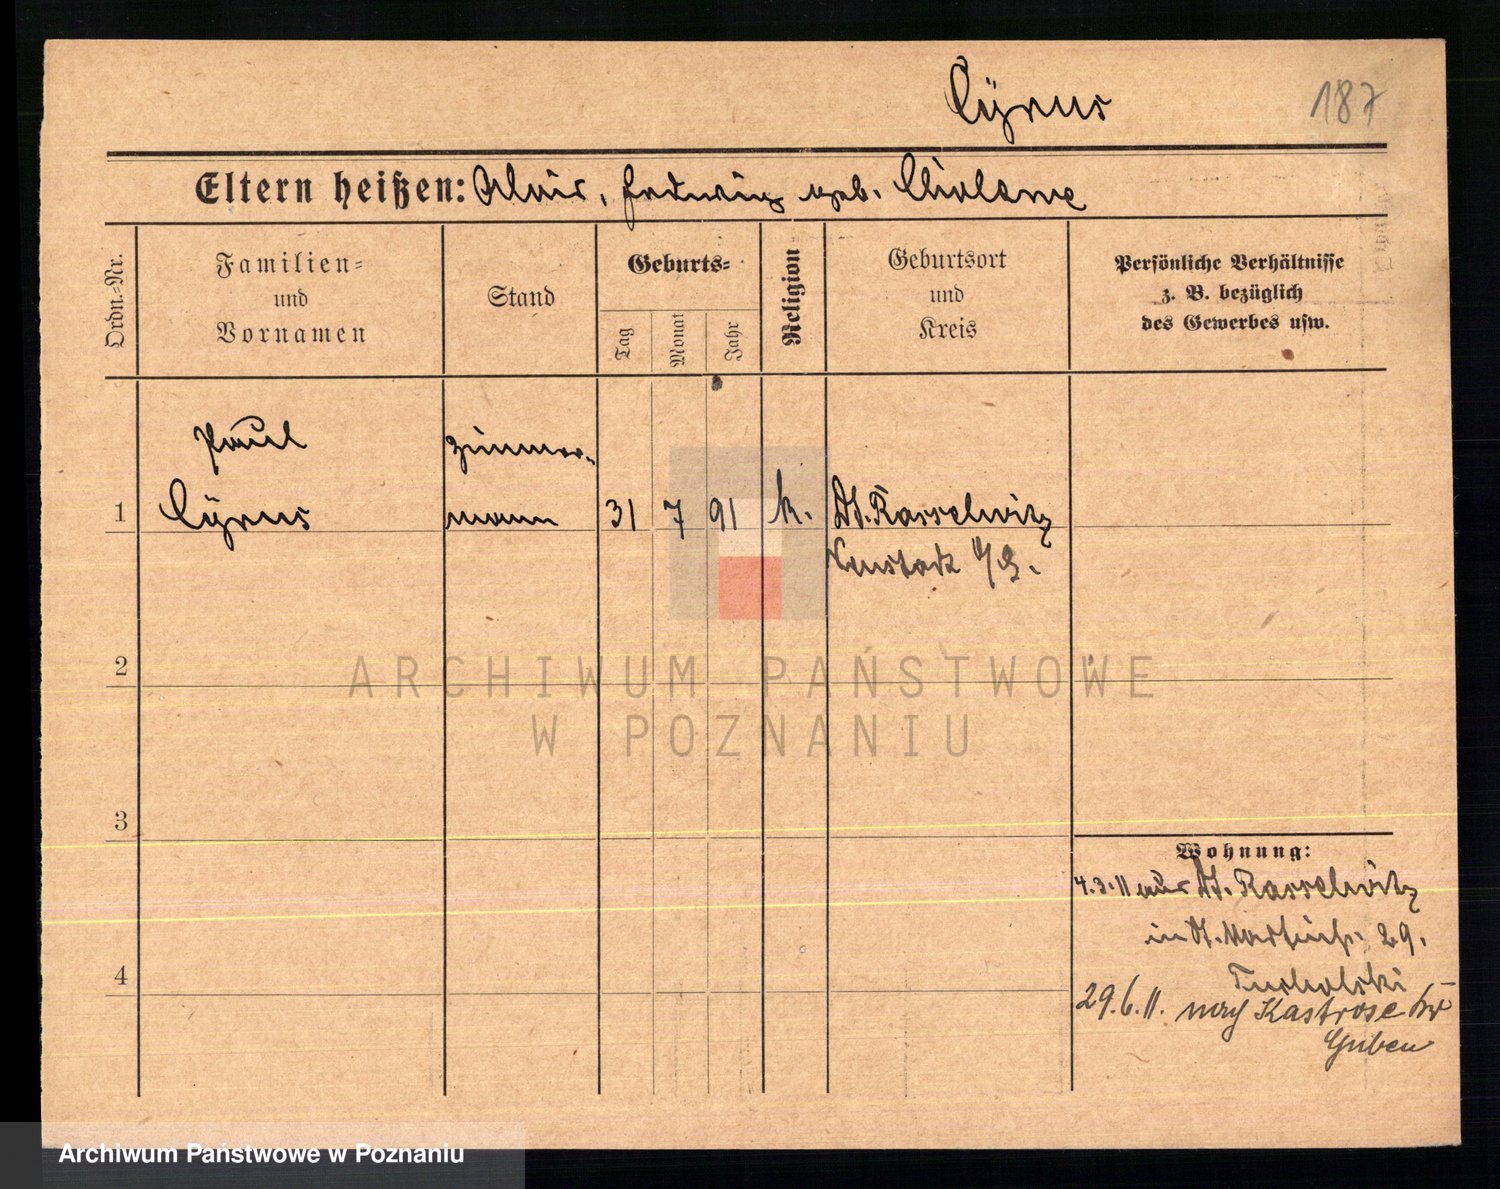 Cyrus 187
Eltern heißen: Alois, Hedwig geb.
Ordn.-Nr.
Familien-
und
Vornamen
Stand
Geburts-
Tag
Monat
Jahr
Religion
Geburtsort
und
Kreis
Persönliche Verhältnisse
z. B. bezüglich
des Gewerbes usw.
Paul Zimmer-
1 Cyrus mann 31 7 91 k. Dt. Rasselwitz
Neustadt O/S.
2
ARCHIWUM PAŃSTWOWE
W POZNANIU
3
Wohnung:
4.3.11 aus Dt. Rasselwitz
in St. Martinstr. 29.
4
Tucholski
29.6.11. nach Kastrose Kr
Guben
Archiwum Państwowe w Poznaniu